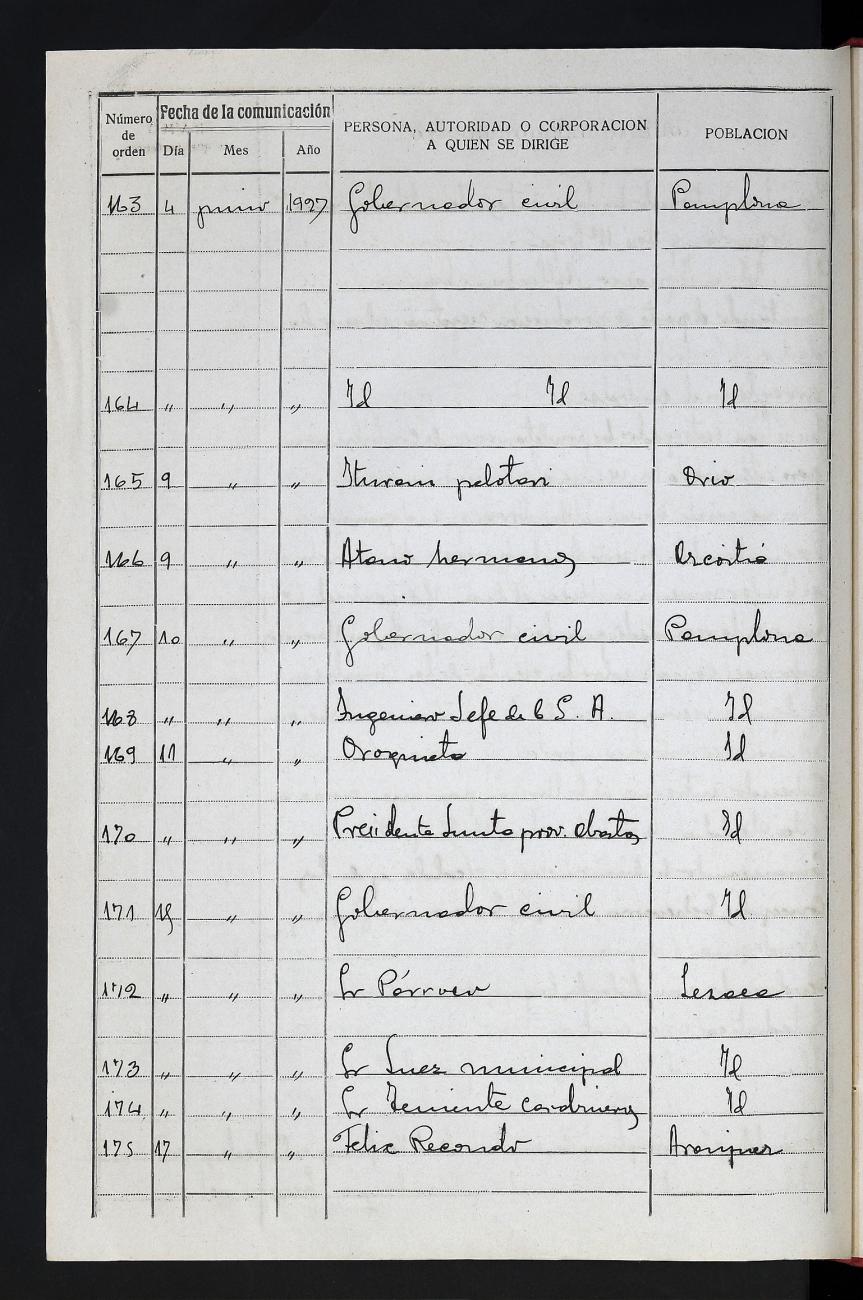 Número de orden Fecha de la comunicación PERSONA, AUTORIDAD O CORPORACION A QUIEN SE DIRIGE POBLACION
Día Mes Año
163 4 junio 1927 Gobernador civil Pamplona
164 " " " Id Id Id
165 9 " " Iturain pelotari Orio
166 9 " " Atano hermanos Azcoitia
167 10 " " Gobernador civil Pamplona
168 " " " Ingeniero Jefe de la S. A. Id
169 11 " " Oroquieta Id
170 " " " Presidente Junta prov. abastos Id
171 15 " " Gobernador civil Id
172 " " " Sr Párroco Lesaca
173 " " " Sr Juez municipal Id
174 " " " Sr Teniente carabineros Id
175 17 " " Felix Recondo Aranjuez